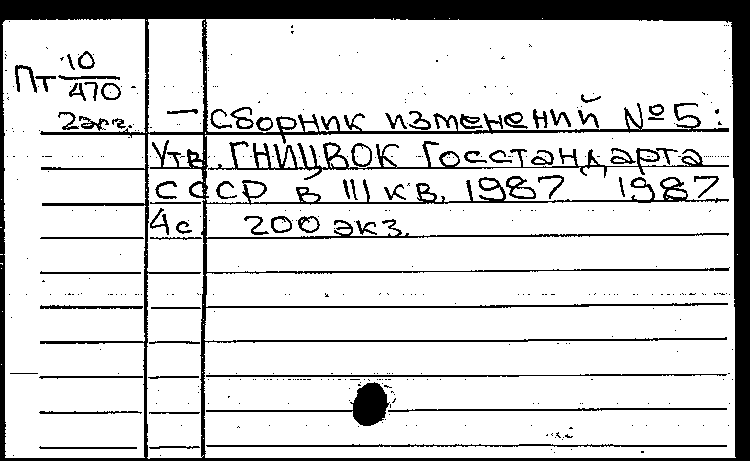 Пт 10/470
2 экз.
— Сборник изменений № 5:
Утв. ГНИЦВОК Госстандарта
СССР в III кв. 1987 1987
4 с. 200 экз.